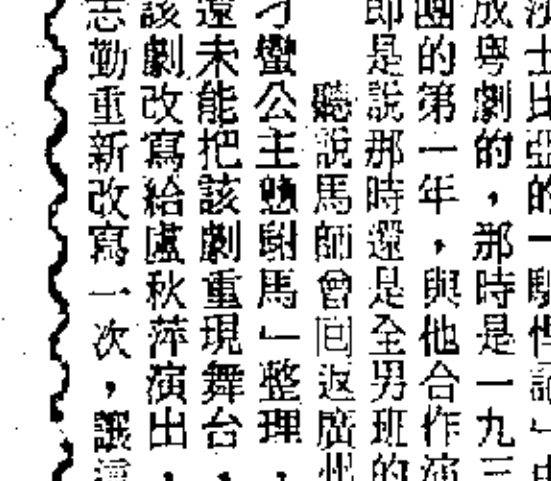 沙士比亞的一馴悍記」由
成粵劇的，那時是一九三
團的第一年，與他合作演
即是說那時還是全男班的
聽說馬師曾回返廣州
刁蠻公主戇駙馬」整理，
還未能把該劇重現舞台，
該劇改寫給盧秋萍演出，
志勤重新改寫一次，讓這